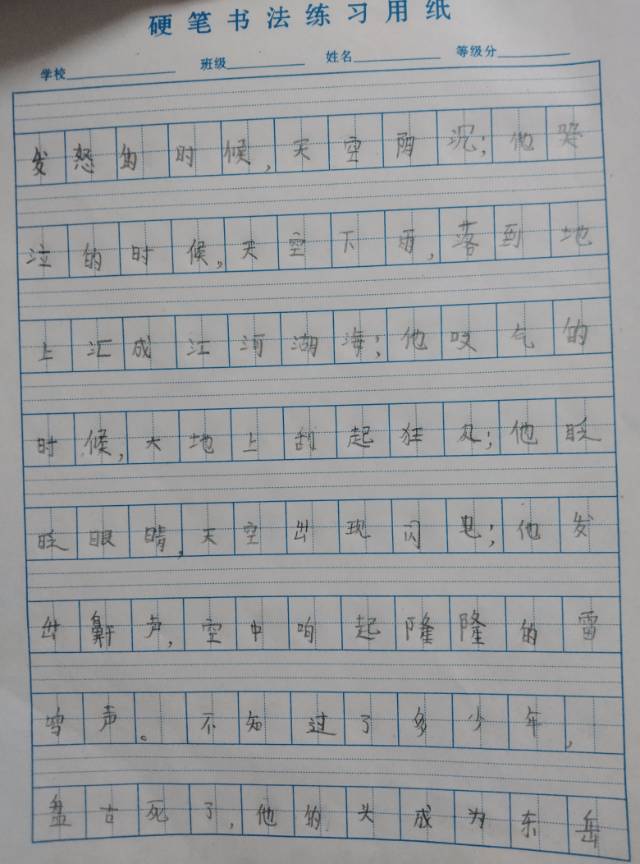 硬笔书法练习用纸
学校 班级 姓名 等级分
发怒的时候,天空阴沉;他哭
泣的时候,天空下雨,落到地
上汇成江河湖海;他叹气的
时候,大地上刮起狂风;他眨
眨眼睛,天空出现闪电;他发
出鼾声,空中响起隆隆的雷
鸣声。不知过了多少年,
盘古死了,他的头成为东岳